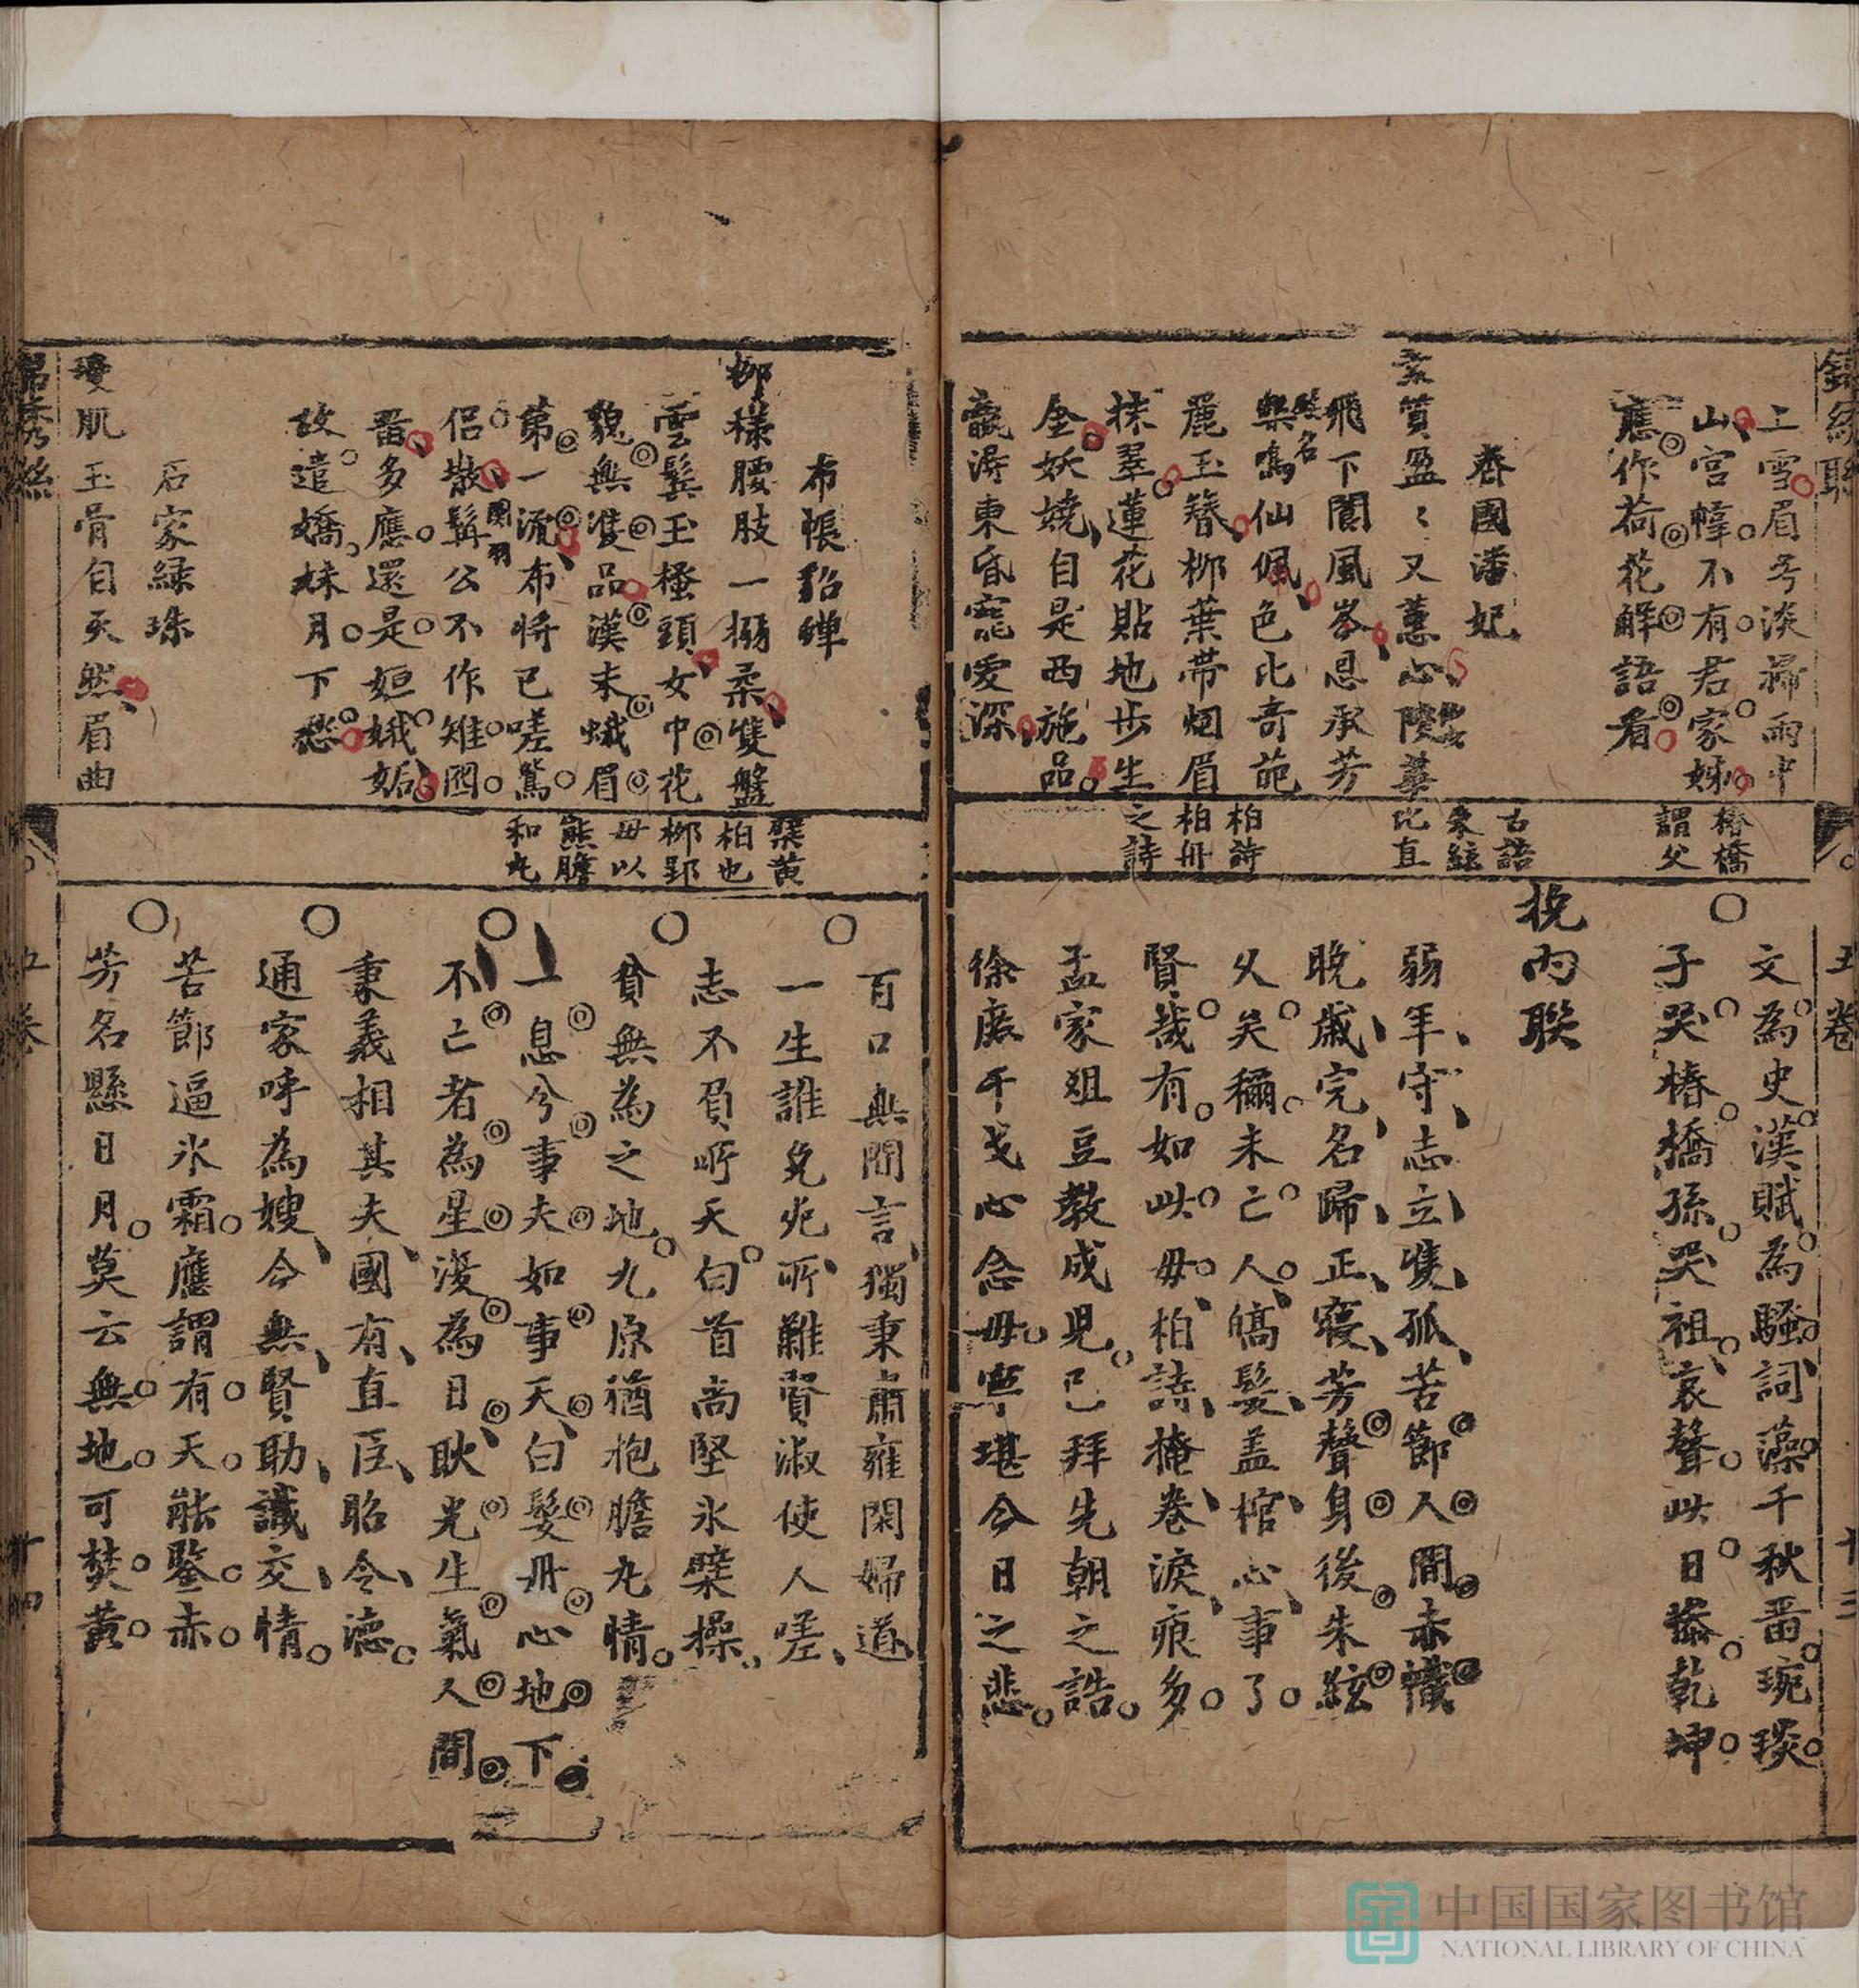 上雪眉兮淡掃雨中
山宮幃不有君家姊
應作荷花解語看
齊國潘妃
素質盈〻又蕙心陵華
飛下閬風岑恩承芳
樂鳴仙佩色比奇葩
樂名
麗玉簪柳葉帶烟眉
抹翠蓮花貼地步生
金妖嬈自是西施品
贏得東昏寵愛深
椿橋
謂父
古詩
朱絃
比直
柏詩
柏舟
之詩
文為史漢賦為騷詞藻千秋畱琬琰
子哭椿橋孫哭祖哀聲此日慘乾坤
挽內聯
弱年守志立隻孤苦節人間赤幟
晚歲完名歸正寢芳聲身後朱絃
久矣稱未亡人皜髮盖棺心事了
賢哉有如此毋柏詩掩卷淚痕多
孟家俎豆教成児已拜先朝之誥
徐庶干戈心念毋寧堪今日之悲
五卷
十三
布帳貂蟬
柳樣腰肢一搦柔雙盤
雲鬓玉搔頭女中花
貌無隻品漢末蛾眉
第一流布將已嗟鴛
侶散髯公不作雉囮
関羽
畱多應還是姮娥妬
故遣嬌妹月下愁
石家緑珠
瓊肌玉骨自天然眉曲
檗黄
柏也
柳郢
毋以
熊膽
和丸
百口無間言獨秉肅雍閑婦道
一生誰免死所難賢淑使人嗟
志不負所天白首尚堅氷檗操
貧無為之地九原猶抱膽丸情
一息兮事夫如事天白髮丹心地下
不亡者為星復為日耿光生氣人間
秉義相其夫國有直臣昭令德
通家呼為嫂今無賢助識交情
苦節逼氷霜應謂有天能鑒赤
芳名懸日月莫云無地可焚黄
五卷
十四
中国国家图书馆
NATIONAL LIBRARY OF CHINA